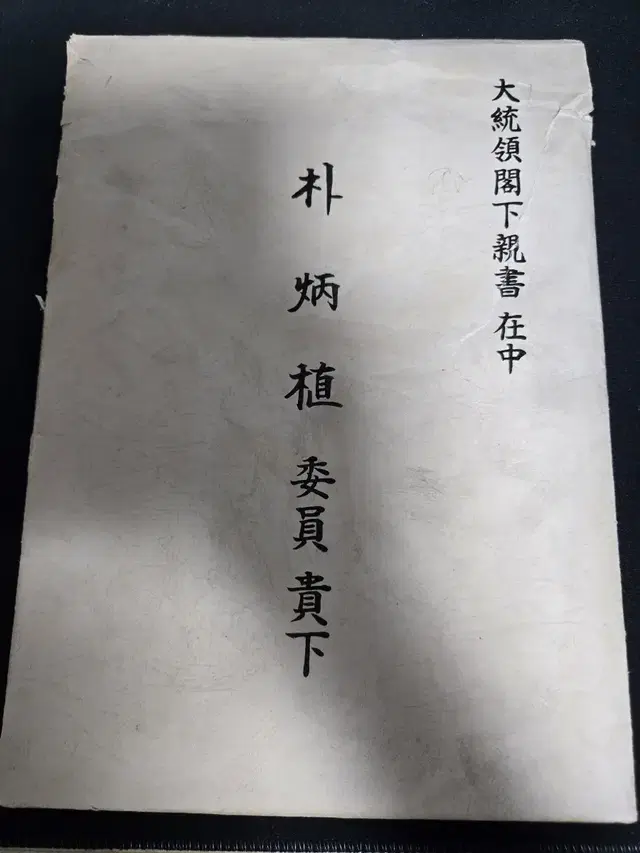 大統領閣下親書 在中
朴炳植 委員 貴下